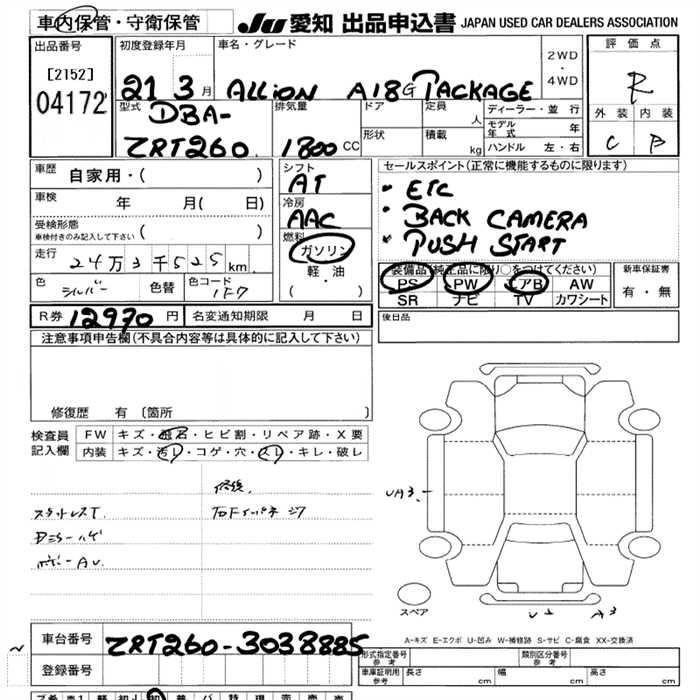 車内保管・守衛保管
JU 愛知 出品申込書 JAPAN USED CAR DEALERS ASSOCIATION
出品番号
[2152]
04172
初度登録年月
21 3月
車名・グレード
ALLION A18 G PACKAGE
2WD
・
4WD
評価点
R
外装 内装
C B
型式
DBA-
ZRT260
排気量
1800 CC
ドア
形状
定員
人
積載
kg
ディーラー・並行
モデル年式 年
ハンドル 左・右
車歴
自家用・( )
車検 年 月( 日)
受検形態
車検付きのみ記入して下さい ( )
走行 24万3千525km
色 シルバー 色替 色コード 1F7
シフト
AT
冷房
AAC
燃料
ガソリン
軽・油
( ・ )
セールスポイント(正常に機能するものに限ります)
・ETC
・BACK CAMERA
・PUSH START
装備品(純正品に限り○をつけてください)
PS PW エアB AW
SR ナビ TV カワシート
新車保証書
有・無
R券 12970円 名変通知期限 月 日
後日品
注意事項申告欄(不具合内容等は具体的に記入して下さい)
修復歴 有〔箇所 〕
検査員
記入欄
FW キズ・飛石・ヒビ割・リペア跡・X要
内装 キズ・汚レ・コゲ・穴・スレ・キレ・破レ
修復
スタットレスT
右Fインパネ
ボデーAU
UA3
A3
スペア
A-キズ E-エクボ U-凹み W-補修跡 S-サビ C-腐食 XX-交換済
車台番号 ZRT260-3038885
登録番号
形式指定番号
参考
類別区分番号
参考
車庫証明用
参考
長さ cm 幅 cm 高さ cm